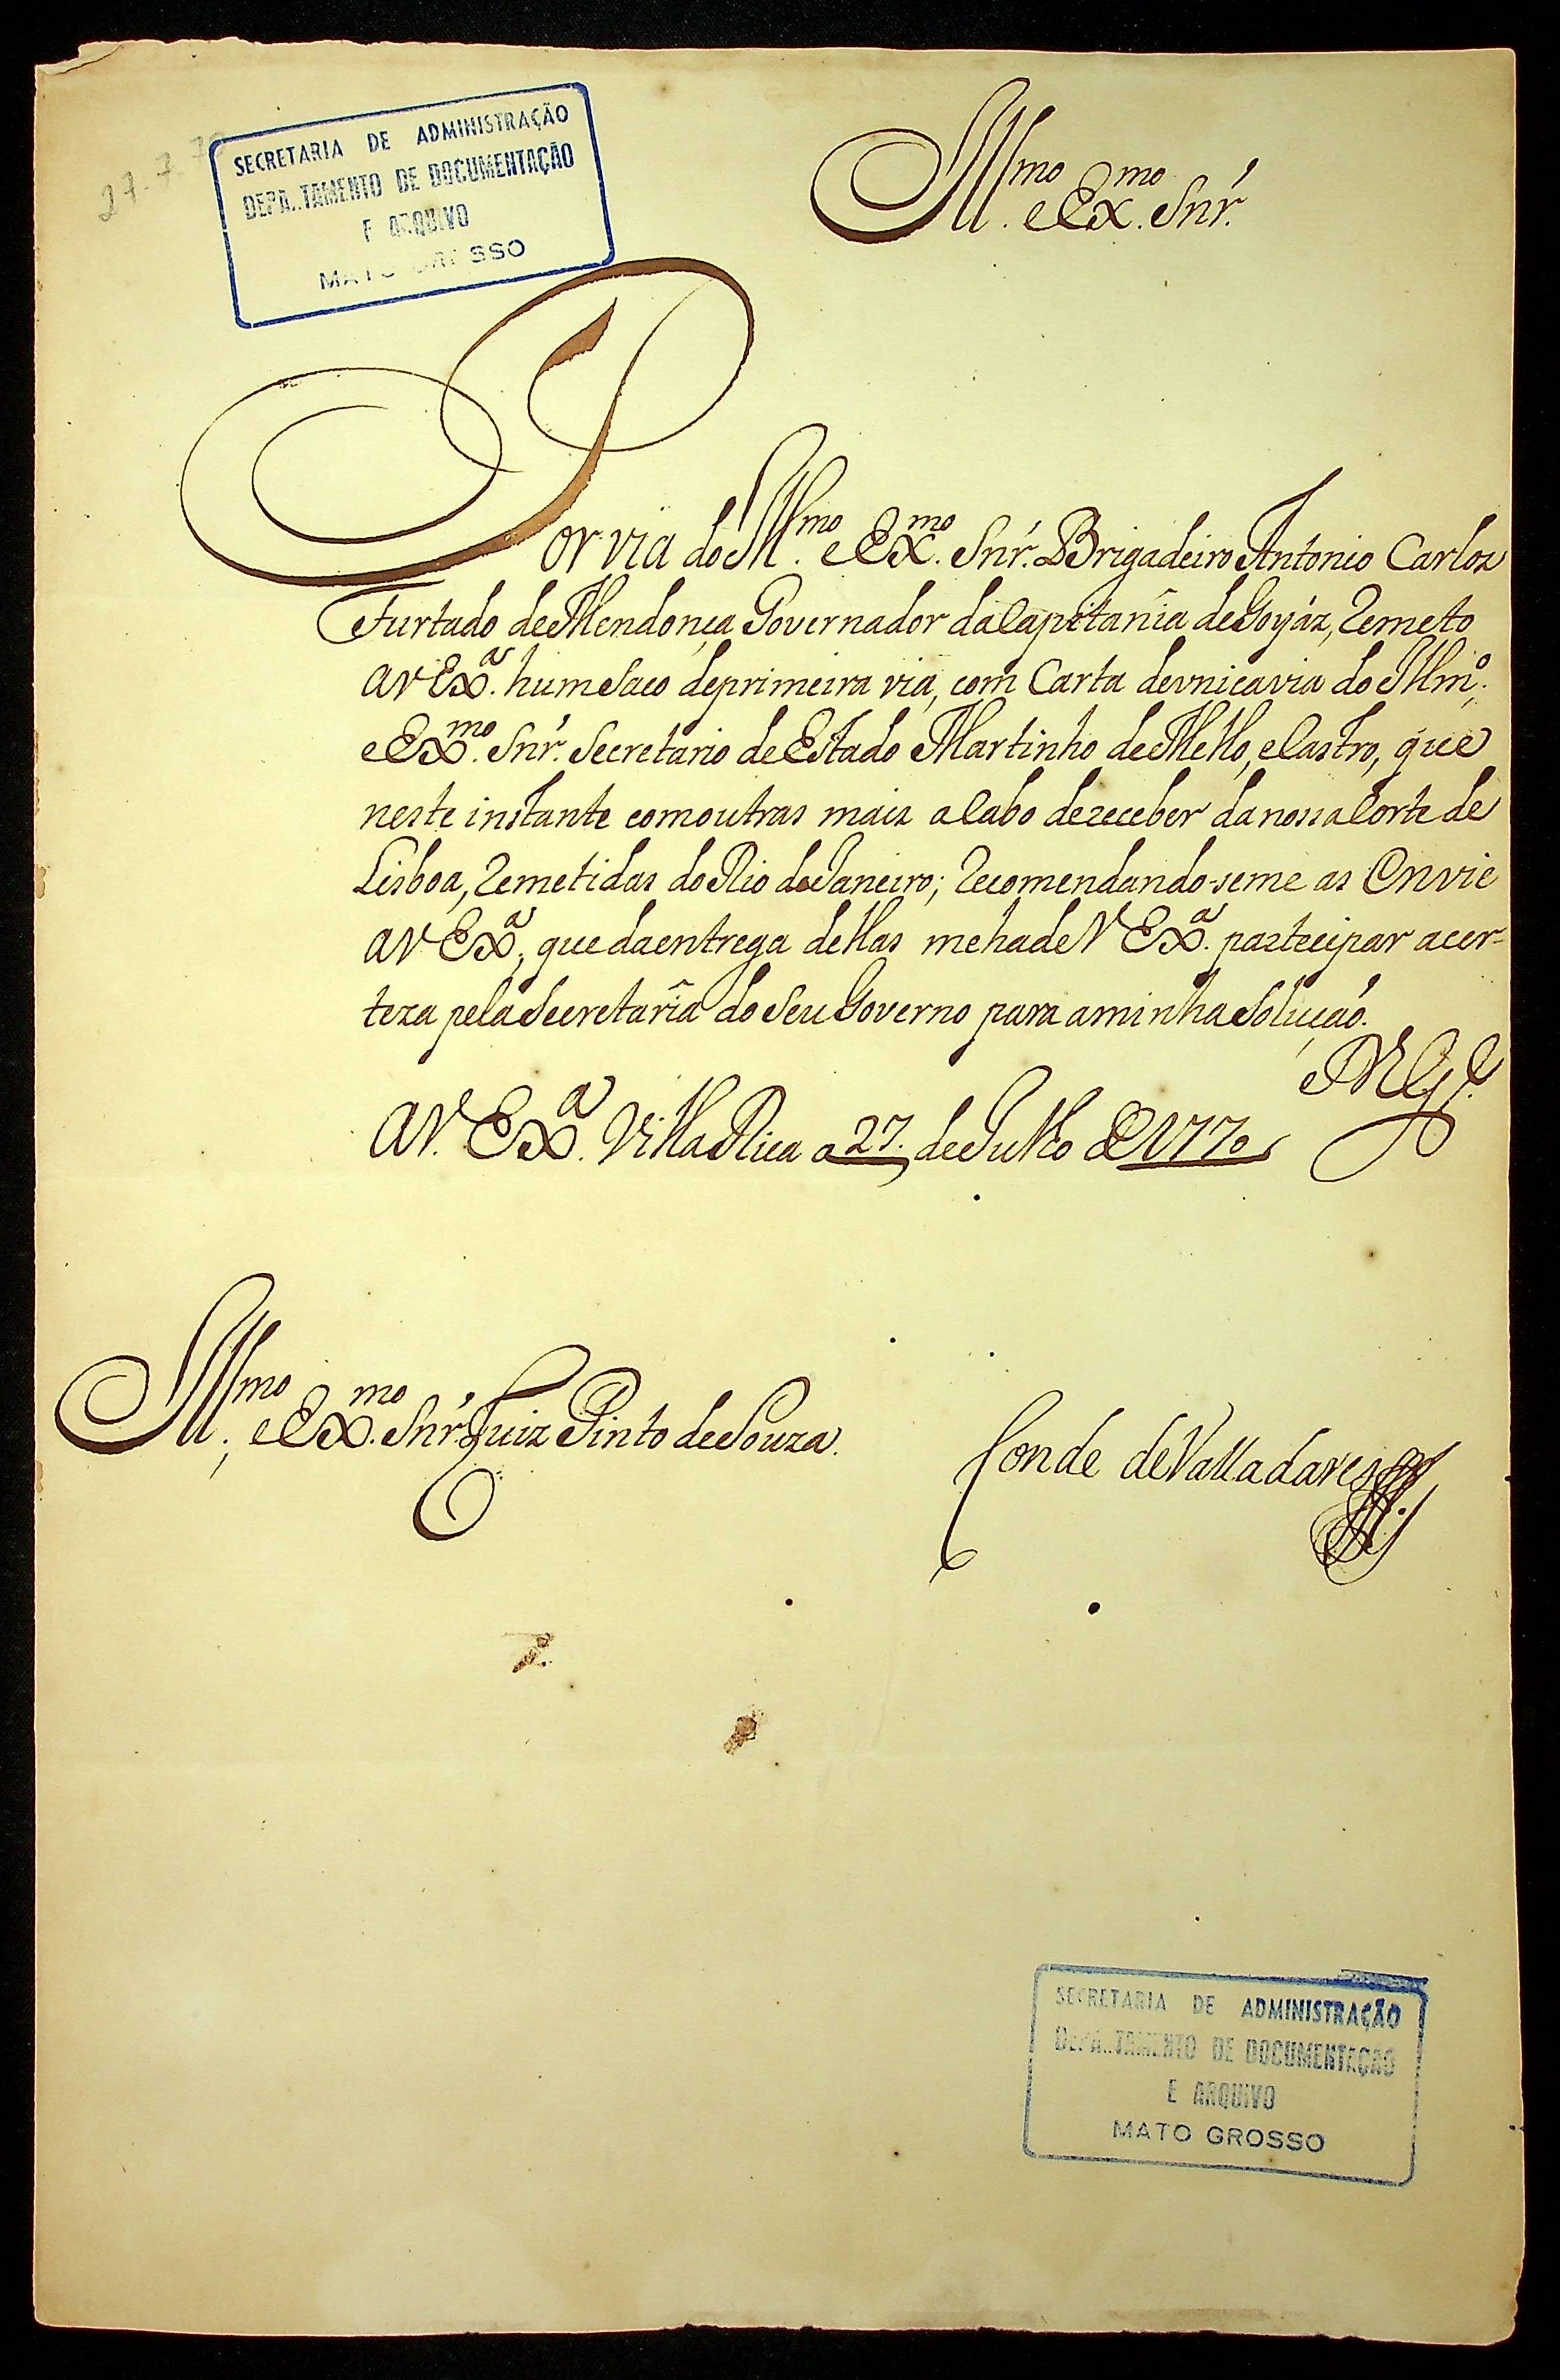 27-7-70
SECRETARIA DE ADMINISTRAÇÃO
DEPARTAMENTO DE DOCUMENTAÇÃO
E ARQUIVO
MATO GROSSO
Ill.mo e Ex.mo Snr.
Por via do Ill.mo e Ex.mo Snr. Brigadeiro Antonio Carlos
Furtado de Mendonça Governador da Capitanîa de Goyáz, Remeto
a V Ex.a hum saco de primeira via, com Carta de vnica via do Illm.o
e Ex.mo Snr. Secretario de Estado Martinho de Mello, e Castro, que
neste instante com outras mais acabo de receber da nossa Corte de
Lisboa, Remetidas do Rio de Janeiro; Recomendando-seme as Envie
a V Ex.a; que da entrega dellas me hade V Ex.a partecipar acer-
teza pela Secretarîa do seu Governo para a minha Soluçaõ.
D.s G.e
a V. Ex.a Villa Rica a 27. de Julho de 1770
Ill.mo e Ex.mo Snr. Luiz Pinto de Souza.
Conde de Valladares
SECRETARIA DE ADMINISTRAÇÃO
DEPARTAMENTO DE DOCUMENTAÇÃO
E ARQUIVO
MATO GROSSO